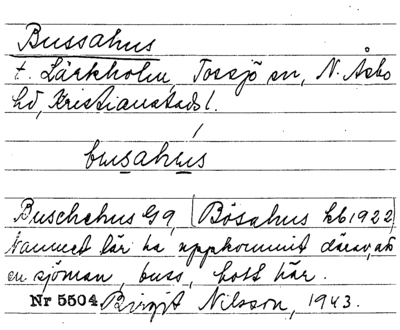 Bussahus
t. Lärkholm, Tossjö sn, N. Åsbo
hd, Kristianstads l.
busahus
Buschehus G9, Bösahus hb 1922
Namnet lär ha uppkommit därav, att
en sjöman, buss, bott här.
Nr 5504 Birgit Nilsson, 1943.